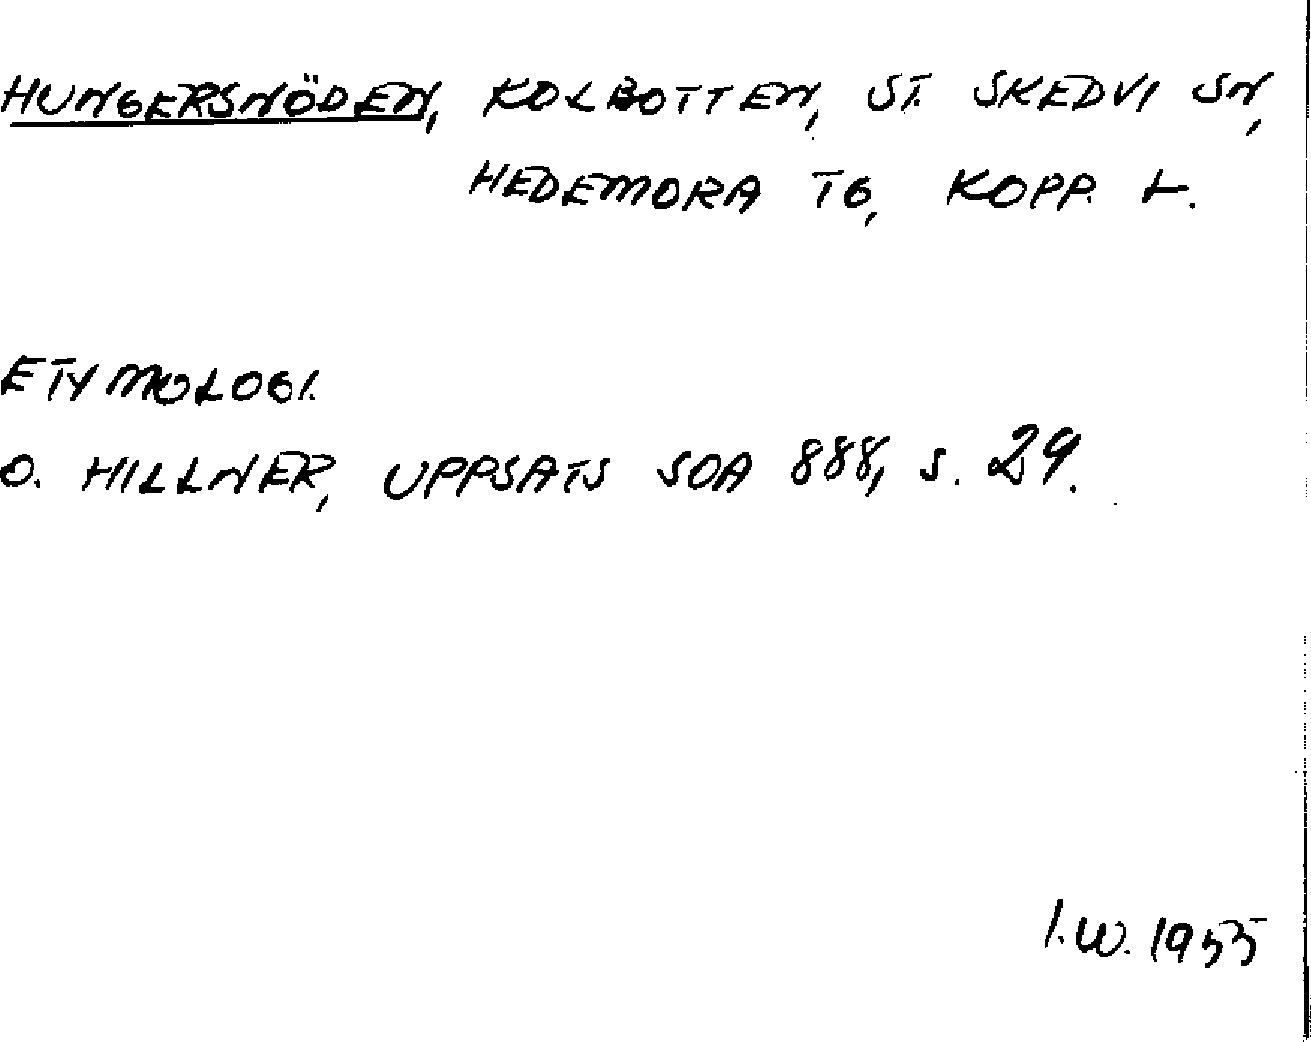 HUNGERSNÖDEN, KOLBOTTEN, ST. SKEDVI SN,
HEDEMORA TG, KOPP. L.
ETYMOLOGI.
O. HILLNER, UPPSATS SOA 888, S. 29.
I.W. 1955